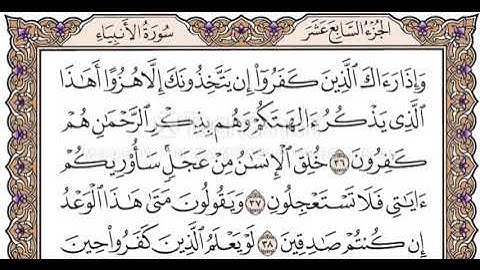 الجزء السابع عشر
سورة الأنبياء
وَإِذَا رَءَاكَ ٱلَّذِينَ كَفَرُوٓا۟ إِن يَتَّخِذُونَكَ إِلَّا هُزُوًا أَهَٰذَا
ٱلَّذِى يَذْكُرُ ءَالِهَتَكُمْ وَهُم بِذِكْرِ ٱلرَّحْمَٰنِ هُمْ
كَٰفِرُونَ ٣٦ خُلِقَ ٱلْإِنسَٰنُ مِنْ عَجَلٍ سَأُو۟رِيكُمْ
ءَايَٰتِى فَلَا تَسْتَعْجِلُونِ ٣٧ وَيَقُولُونَ مَتَىٰ هَٰذَا ٱلْوَعْدُ
إِن كُنتُمْ صَٰدِقِينَ ٣٨ لَوْ يَعْلَمُ ٱلَّذِينَ كَفَرُوا۟ حِينَ